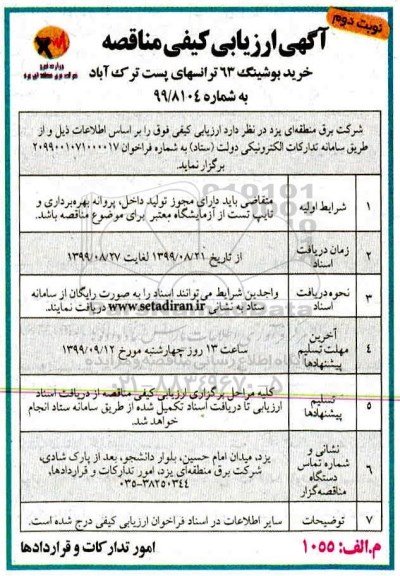 نوبت دوم
آگهی ارزیابی کیفی مناقصه
خرید بوشینگ ۶۳ ترانسهای پست ترک آباد
به شماره ۹۹/۸۱۰۴
شرکت برق منطقه‌ای یزد در نظر دارد ارزیابی کیفی فوق را بر اساس اطلاعات ذیل و از
طریق سامانه تدارکات الکترونیکی دولت (ستاد) به شماره فراخوان ۲۰۹۹۰۰۱۰۷۱۰۰۰۰۱۷
برگزار نماید.
۱ شرایط اولیه متقاضی باید دارای مجوز تولید داخل، پروانه بهره‌برداری و
تایپ تست از آزمایشگاه معتبر برای موضوع مناقصه باشد.
۲ زمان دریافت
اسناد
از تاریخ ۱۳۹۹/۰۸/۲۱ لغایت ۱۳۹۹/۰۸/۲۷
۳ نحوه دریافت
اسناد
واجدین شرایط می‌توانند اسناد را به صورت رایگان از سامانه
ستاد به نشانی www.setadiran.ir دریافت نمایند.
۴ آخرین
مهلت تسلیم
پیشنهادها
ساعت ۱۳ روز چهارشنبه مورخ ۱۳۹۹/۰۹/۱۲
۵ تسلیم
پیشنهادها
کلیه مراحل برگزاری ارزیابی کیفی مناقصه از دریافت اسناد
ارزیابی تا دریافت اسناد تکمیل شده از طریق سامانه ستاد انجام
خواهد شد.
۶ نشانی و
شماره تماس
دستگاه
مناقصه‌گزار
یزد، میدان امام حسین، بلوار دانشجو، بعد از پارک شادی،
شرکت برق منطقه‌ای یزد، امور تدارکات و قراردادها،
۰۳۵-۳۸۲۵۰۳۴۴
۷ توضیحات سایر اطلاعات در اسناد فراخوان ارزیابی کیفی درج شده است.
م.الف: ۱۰۵۵
امور تدارکات و قراردادها
۰۲۱-۸۸۳۴۹۶۷۰-۵